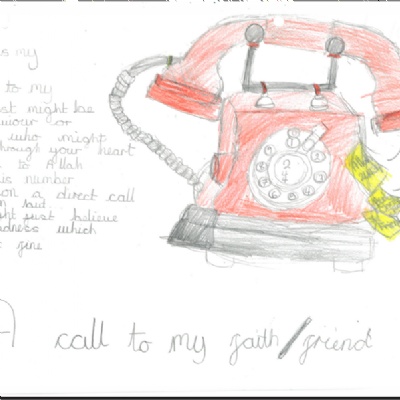 s my
to my
st might be
viour or
who might
hrough your heart
to Allah
is number
on a direct call
n but
ght just believe
dness which
fine
A call to my faith/friend